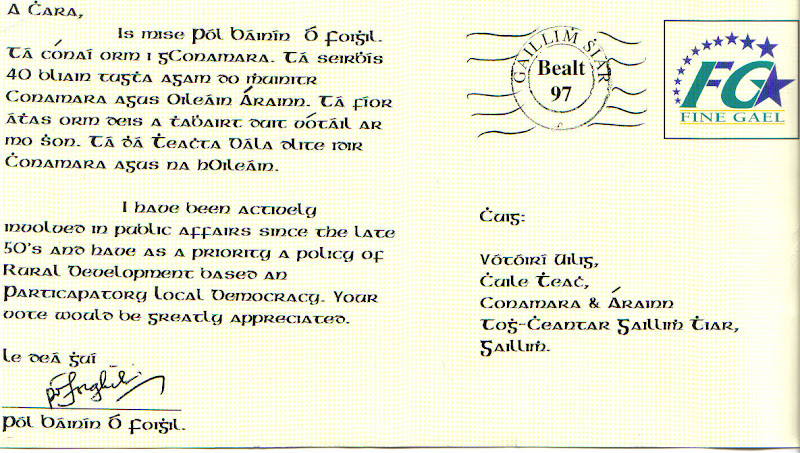 A Ċara,
Is mise Pól Báinín Ó Foiġil.
Tá cónaí orm i gConamara. Tá seirḃís
40 bliain tugṫa agam do ṁuintir
Conamara agus Oileáin Árainn. Tá fíor
áṫas orm deis a ṫaḃairt duit vótáil ar
mo ṡon. Tá ḋá Ṫeaċta Dála dlite idir
Ċonamara agus na hOileáin.
I have been actively
involved in public affairs since the late
50's and have as a priority a policy of
Rural Development based an
Particapatory Local Democracy. Your
vote would be greatly appreciated.
Le deá ġuí
Pól Báinín Ó Foiġil.
GAILLIṀ ṠIAR
Bealt
97
FG
FINE GAEL
Ċuig:
Vótóirí Uilig,
Ċuile Ṫeaċ,
Conamara & Árainn
Toġ-Ċeantar Gailliṁ Ṫiar,
Gailliṁ.